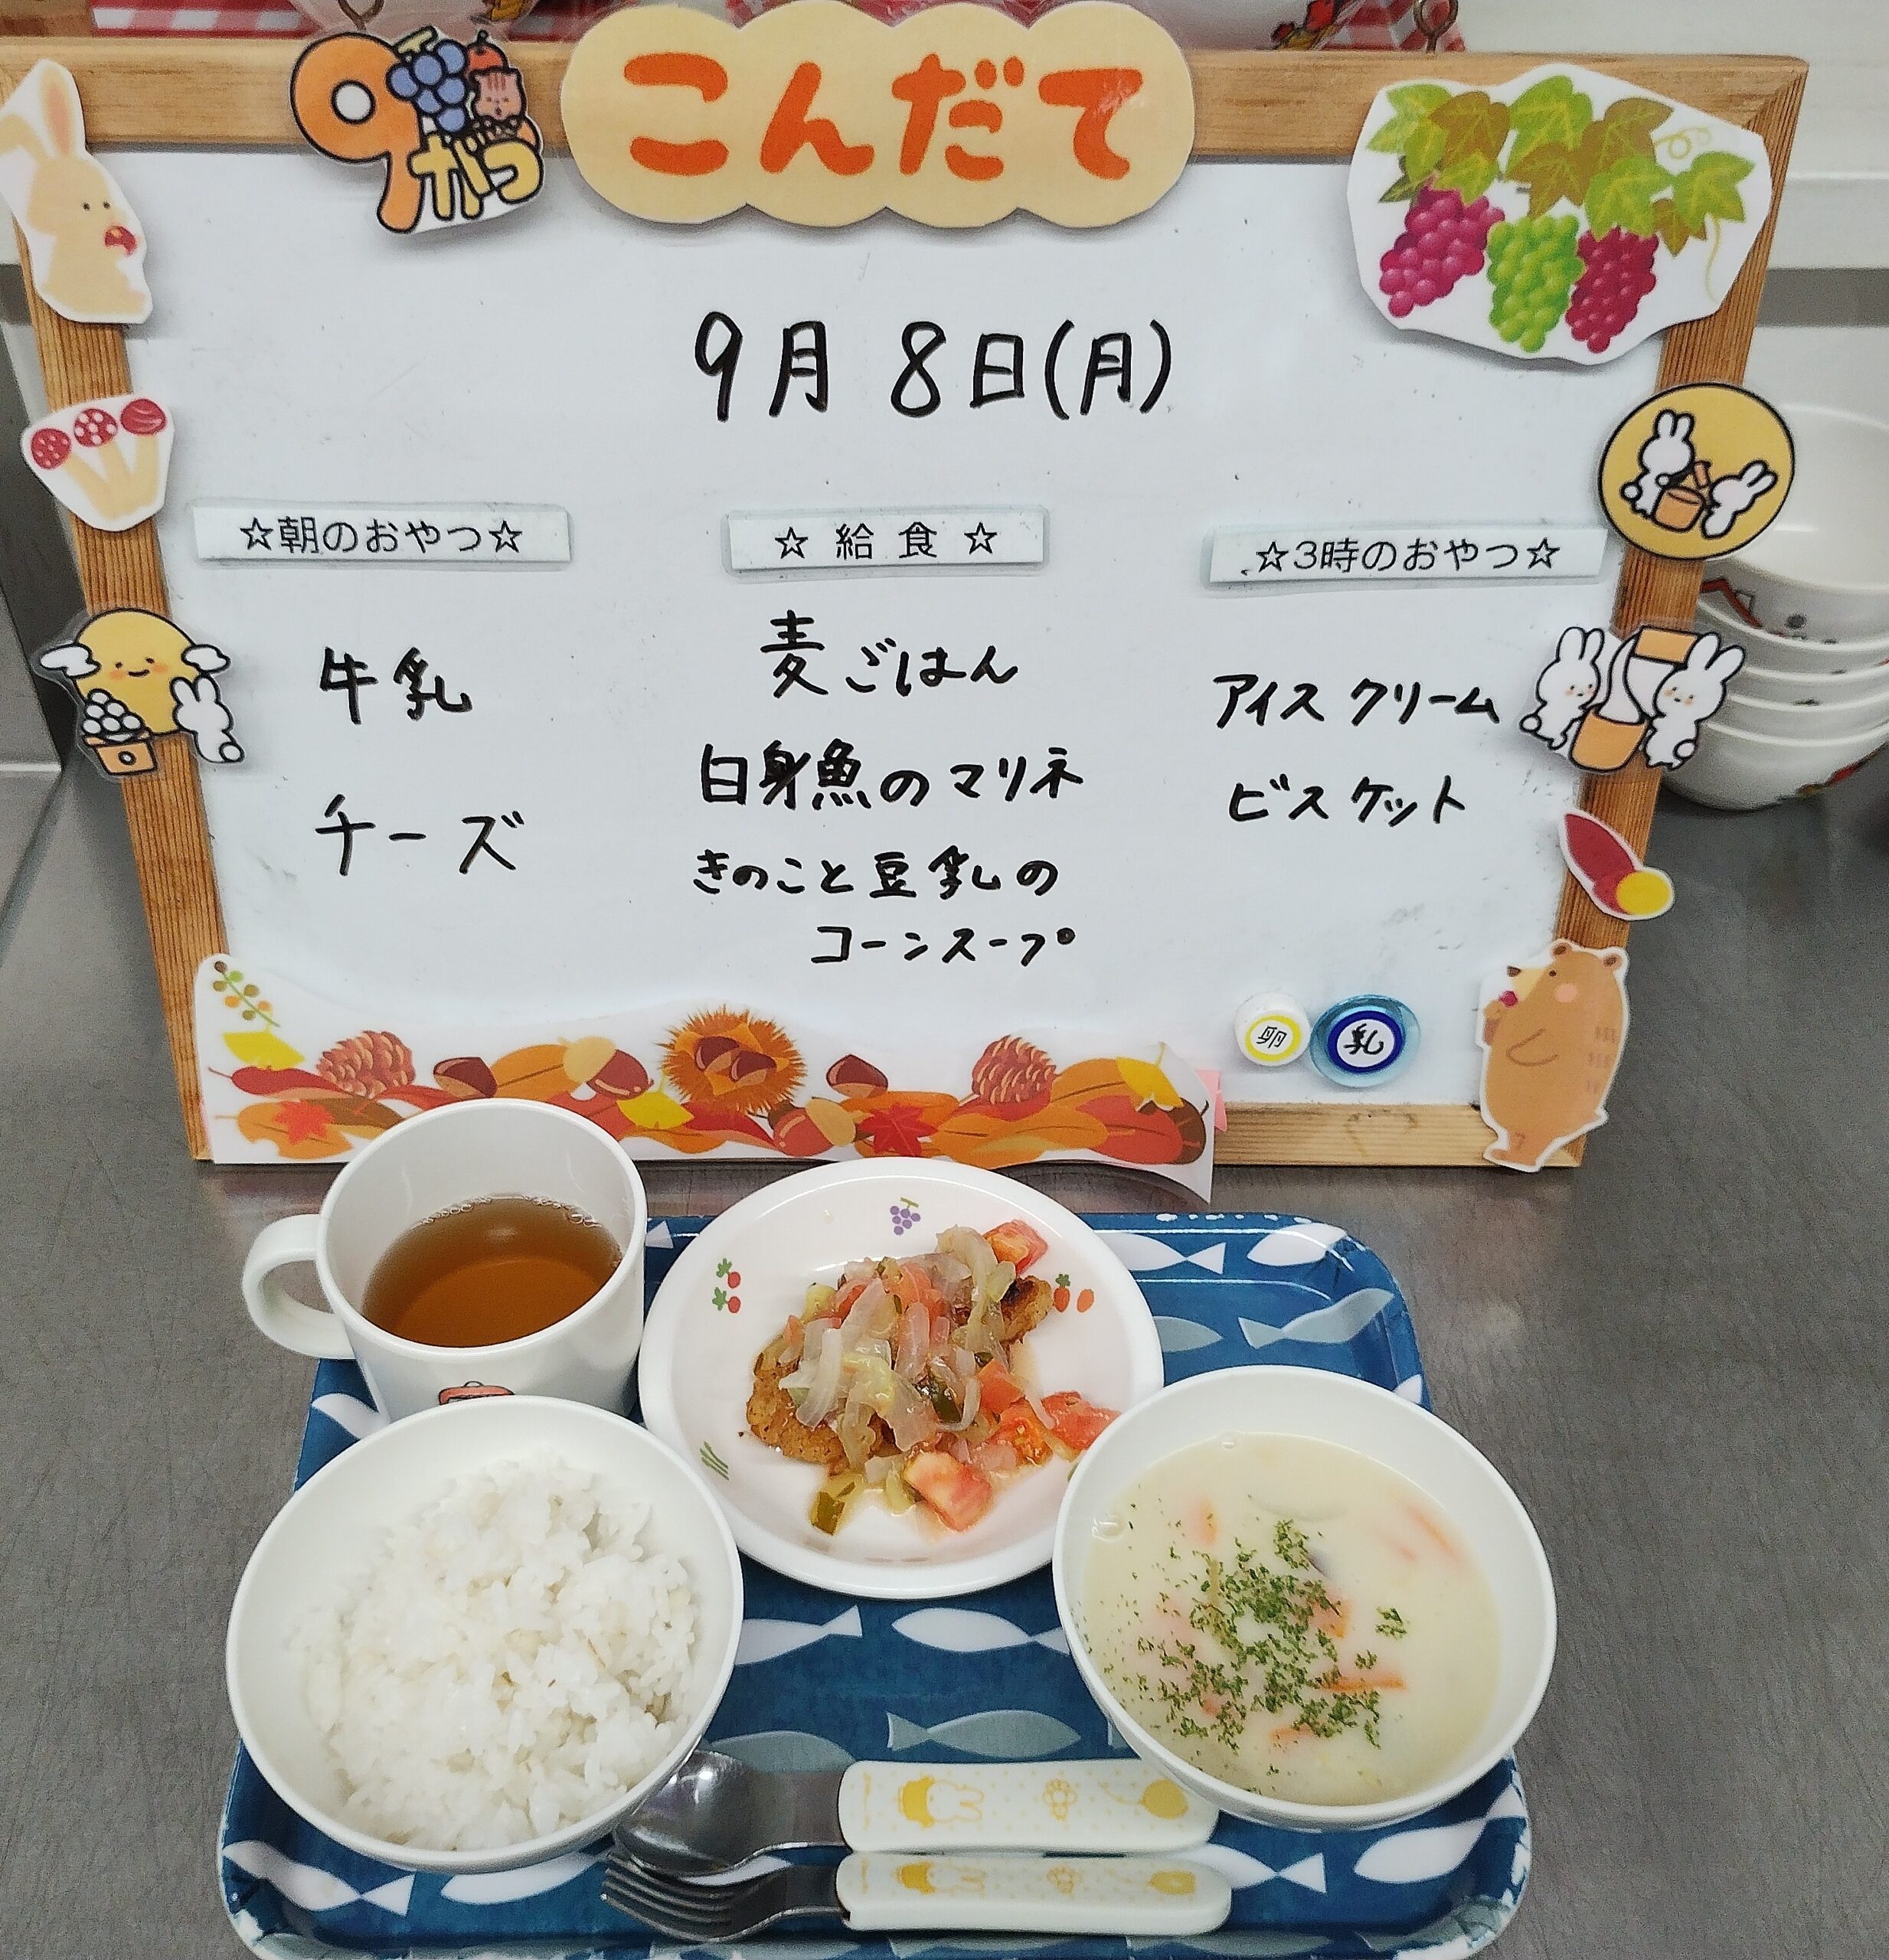 9がつ
こんだて
9月 8日(月)
☆朝のおやつ☆
牛乳
チーズ
☆ 給 食 ☆
麦ごはん
白身魚のマリネ
きのこと豆乳の
コーンスープ
☆3時のおやつ☆
アイスクリーム
ビスケット
卵
乳